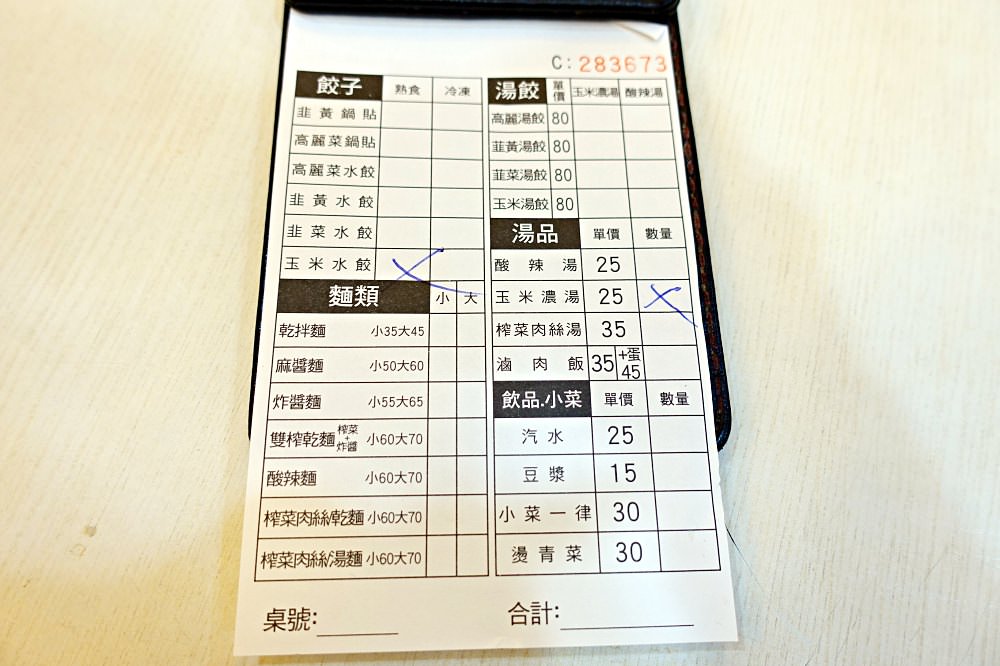 C:283673
餃子 熟食 冷凍
韭黃鍋貼
高麗菜鍋貼
高麗菜水餃
韭黃水餃
韭菜水餃
玉米水餃
麵類 小 大
乾拌麵 小35大45
麻醬麵 小50大60
炸醬麵 小55大65
雙榨乾麵 榨菜+炸醬 小60大70
酸辣麵 小60大70
榨菜肉絲/乾麵 小60大70
榨菜肉絲/湯麵 小60大70
湯餃 單價 玉米濃湯 酸辣湯
高麗湯餃 80
韭黃湯餃 80
韭菜湯餃 80
玉米湯餃 80
湯品 單價 數量
酸辣湯 25
玉米濃湯 25
榨菜肉絲湯 35
滷肉飯 35 +蛋45
飲品.小菜 單價 數量
汽水 25
豆漿 15
小菜一律 30
燙青菜 30
桌號:
合計: